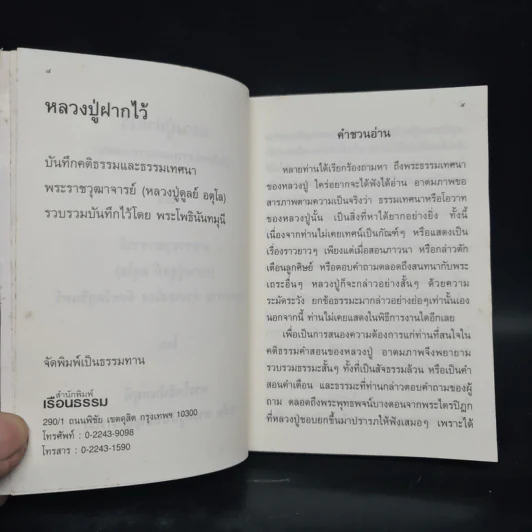 ๘
หลวงปู่ฝากไว้
บันทึกคติธรรมและธรรมเทศนา
พระราชวุฒาจารย์ (หลวงปู่ดูลย์ อตุโล)
รวบรวมบันทึกไว้โดย พระโพธินันทมุนี
จัดพิมพ์เป็นธรรมทาน
สำนักพิมพ์
เรือนธรรม
290/1 ถนนพิชัย เขตดุสิต กรุงเทพฯ 10300
โทรศัพท์ : 0-2243-9098
โทรสาร : 0-2243-1590
๙
คำชวนอ่าน
หลายท่านได้เรียกร้องถามหา ถึงพระธรรมเทศนา
ของหลวงปู่ ใคร่อยากจะได้ฟังได้อ่าน อาตมภาพขอ
สารภาพตามความเป็นจริงว่า ธรรมเทศนาหรือโอวาท
ของหลวงปู่นั้น เป็นสิ่งที่หาได้ยากอย่างยิ่ง ทั้งนี้
เนื่องจากท่านไม่เคยเทศน์เป็นกัณฑ์ๆ หรือแสดงเป็น
เรื่องราวยาวๆ เพียงแต่เมื่อสอนภาวนา หรือกล่าวตัก
เตือนลูกศิษย์ หรือตอบคำถามตลอดถึงสนทนากับพระ
เถระอื่นๆ หลวงปู่ก็จะกล่าวอย่างสั้นๆ ด้วยความ
ระมัดระวัง ยกข้อธรรมะมากล่าวอย่างย่อๆเท่านั้นเอง
นอกจากนี้ ท่านไม่เคยแสดงในพิธีการงานใดอีกเลย
เพื่อเป็นการสนองความต้องการแก่ท่านที่สนใจใน
คติธรรมคำสอนของหลวงปู่ อาตมภาพจึงพยายาม
รวบรวมธรรมะสั้นๆ ทั้งที่เป็นสัจธรรมล้วน หรือเป็นคำ
สอนคำเตือน และธรรมะที่ท่านกล่าวตอบคำถามของผู้
ถาม ตลอดถึงพระพุทธพจน์บางตอนจากพระไตรปิฎก
ที่หลวงปู่ชอบยกขึ้นมาปรารภให้ฟังเสมอๆ เพราะได้